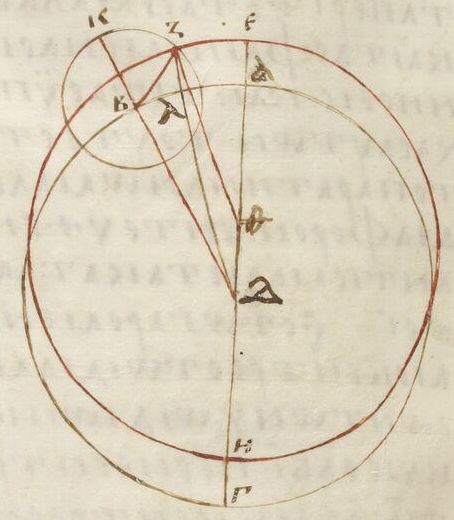 Κ Ζ Ε
Α
Β Λ
Θ
Δ
Η
Γ